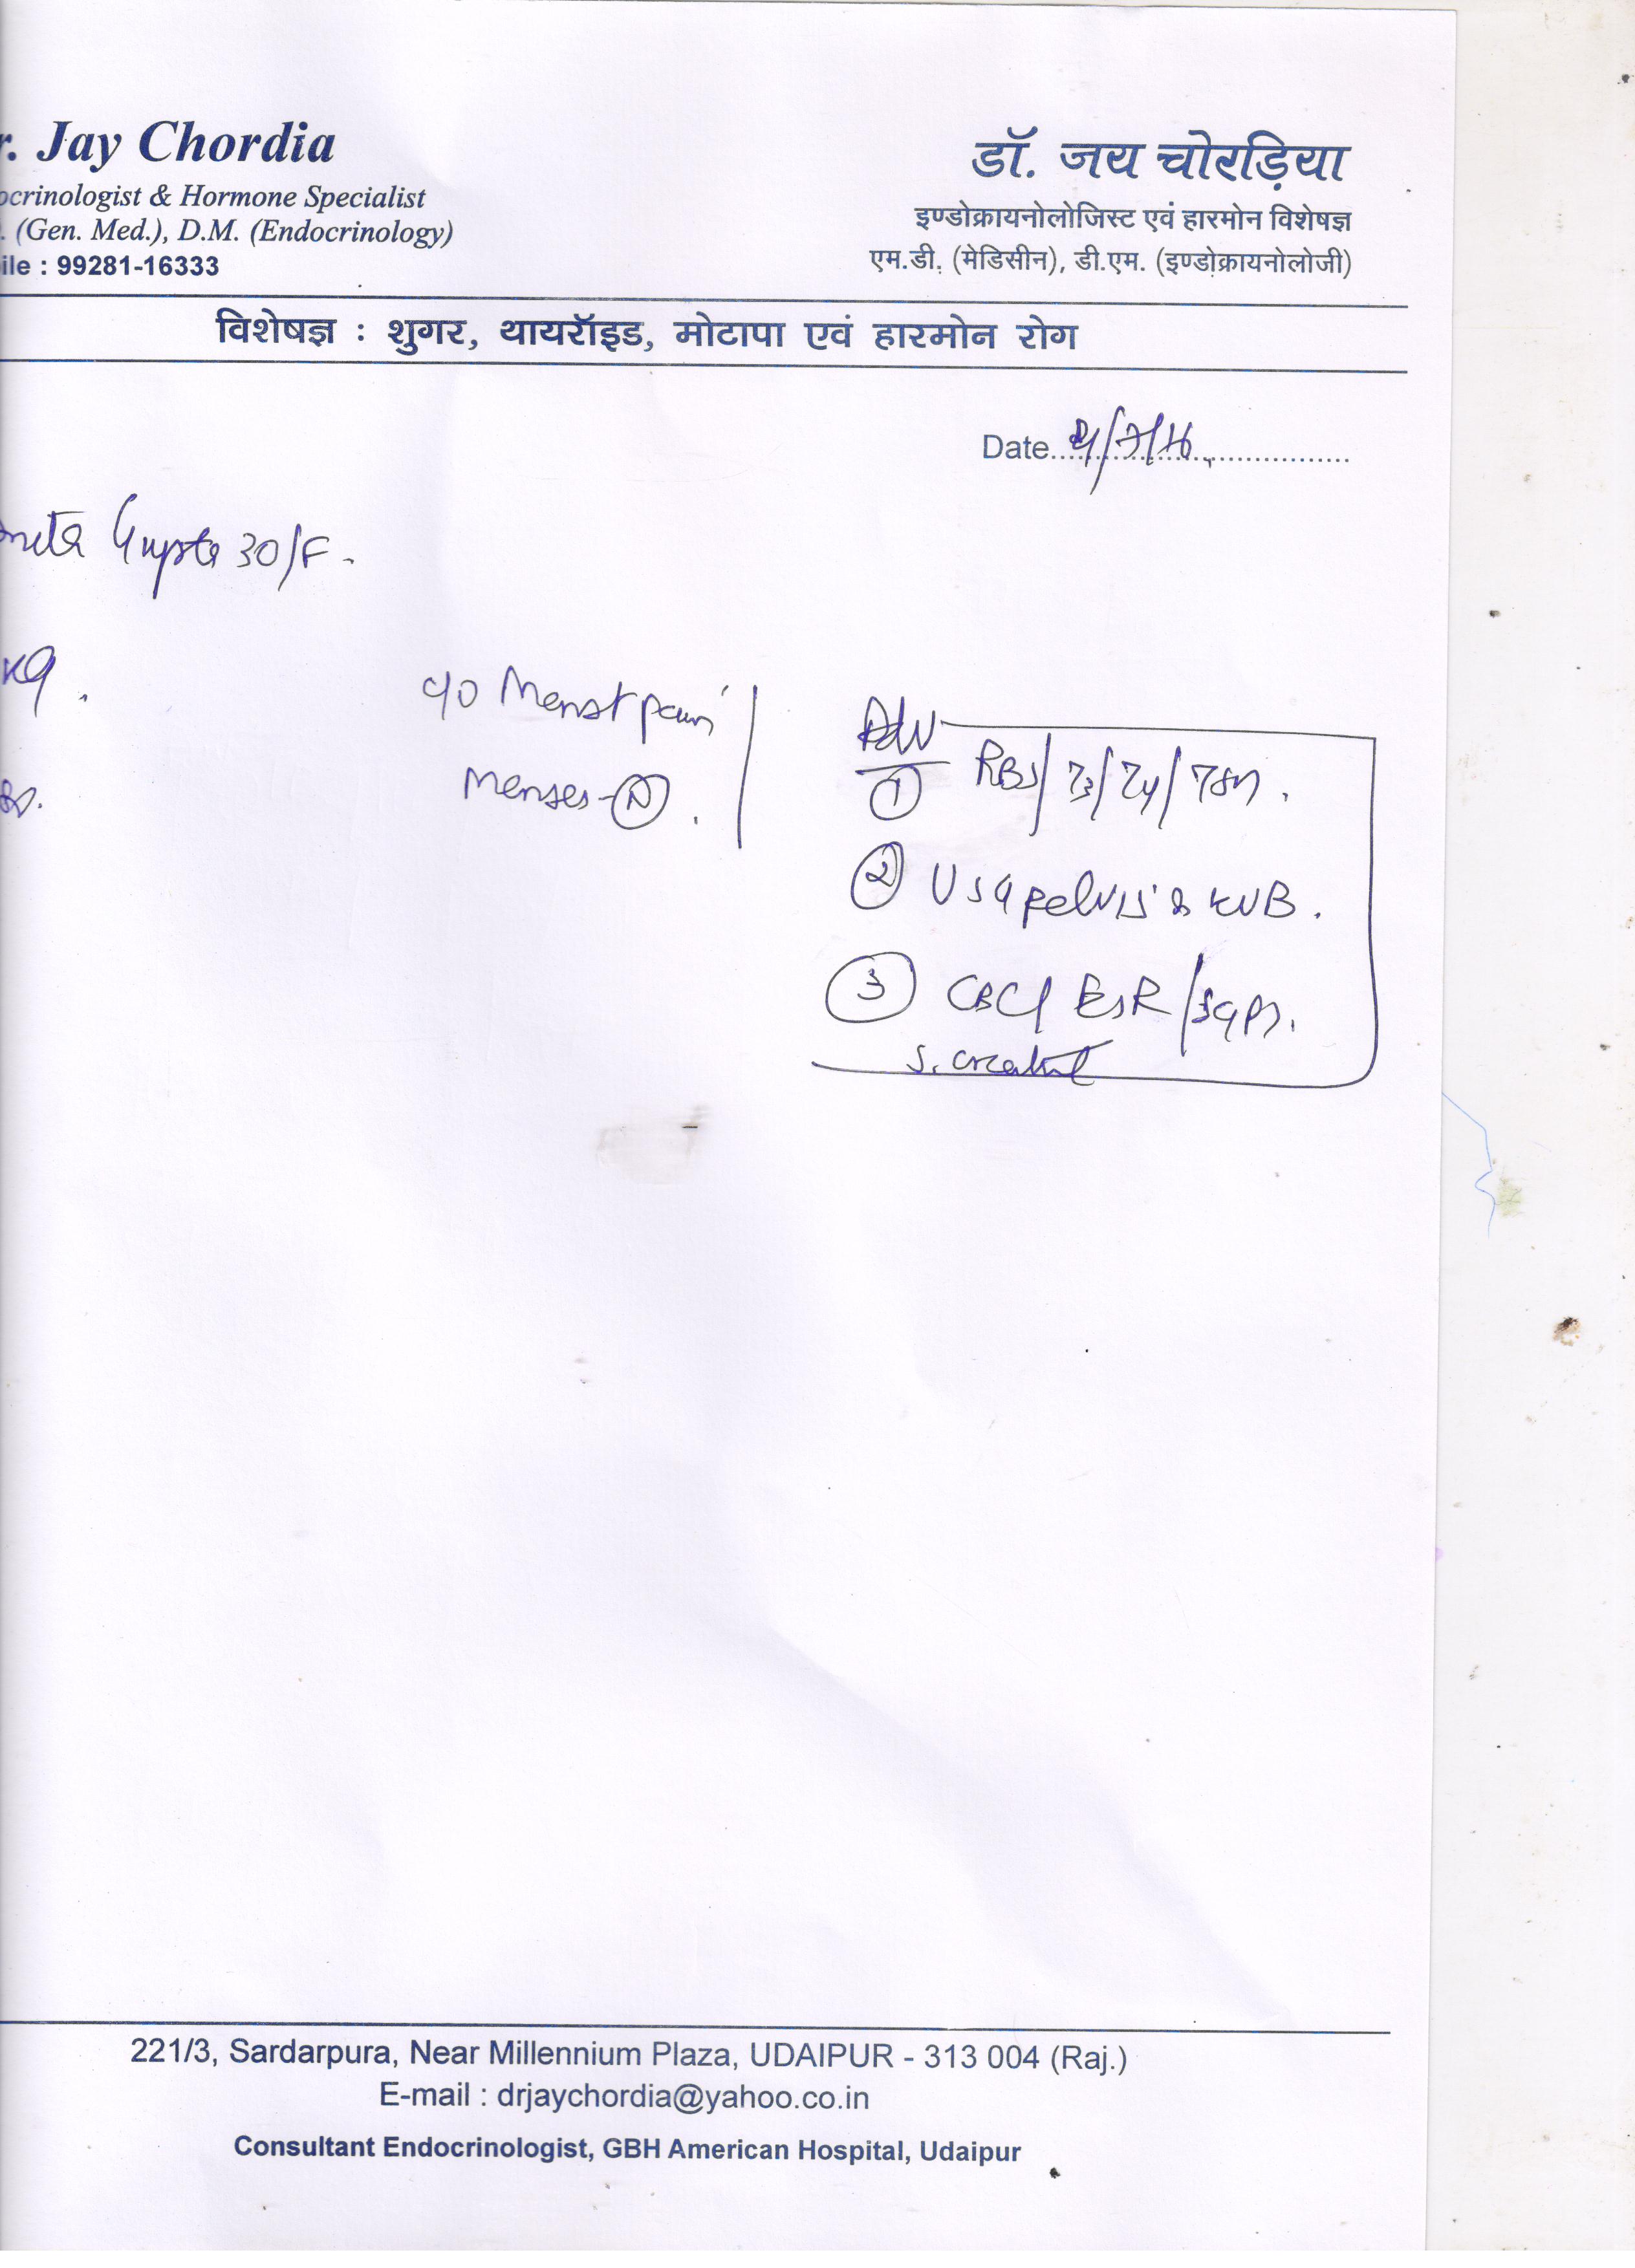 r. Jay Chordia
डॉ. जय चोरड़िया
ocrinologist & Hormone Specialist
इण्डोक्रायनोलोजिस्ट एवं हारमोन विशेषज्ञ
. (Gen. Med.), D.M. (Endocrinology)
एम.डी. (मेडिसीन), डी.एम. (इण्डोक्रायनोलोजी)
ile : 99281-16333
विशेषज्ञ : शुगर, थायरॉइड, मोटापा एवं हारमोन रोग
Date
Gupta 30/F.
kg.
c/o Menst pain
Menses - N.
Adv
1 RBS / T3/T4/TSH.
2 USG pelvis & KUB.
3 CBC/ ESR / SGPT.
S. creat
221/3, Sardarpura, Near Millennium Plaza, UDAIPUR - 313 004 (Raj.)
E-mail : drjaychordia@yahoo.co.in
Consultant Endocrinologist, GBH American Hospital, Udaipur